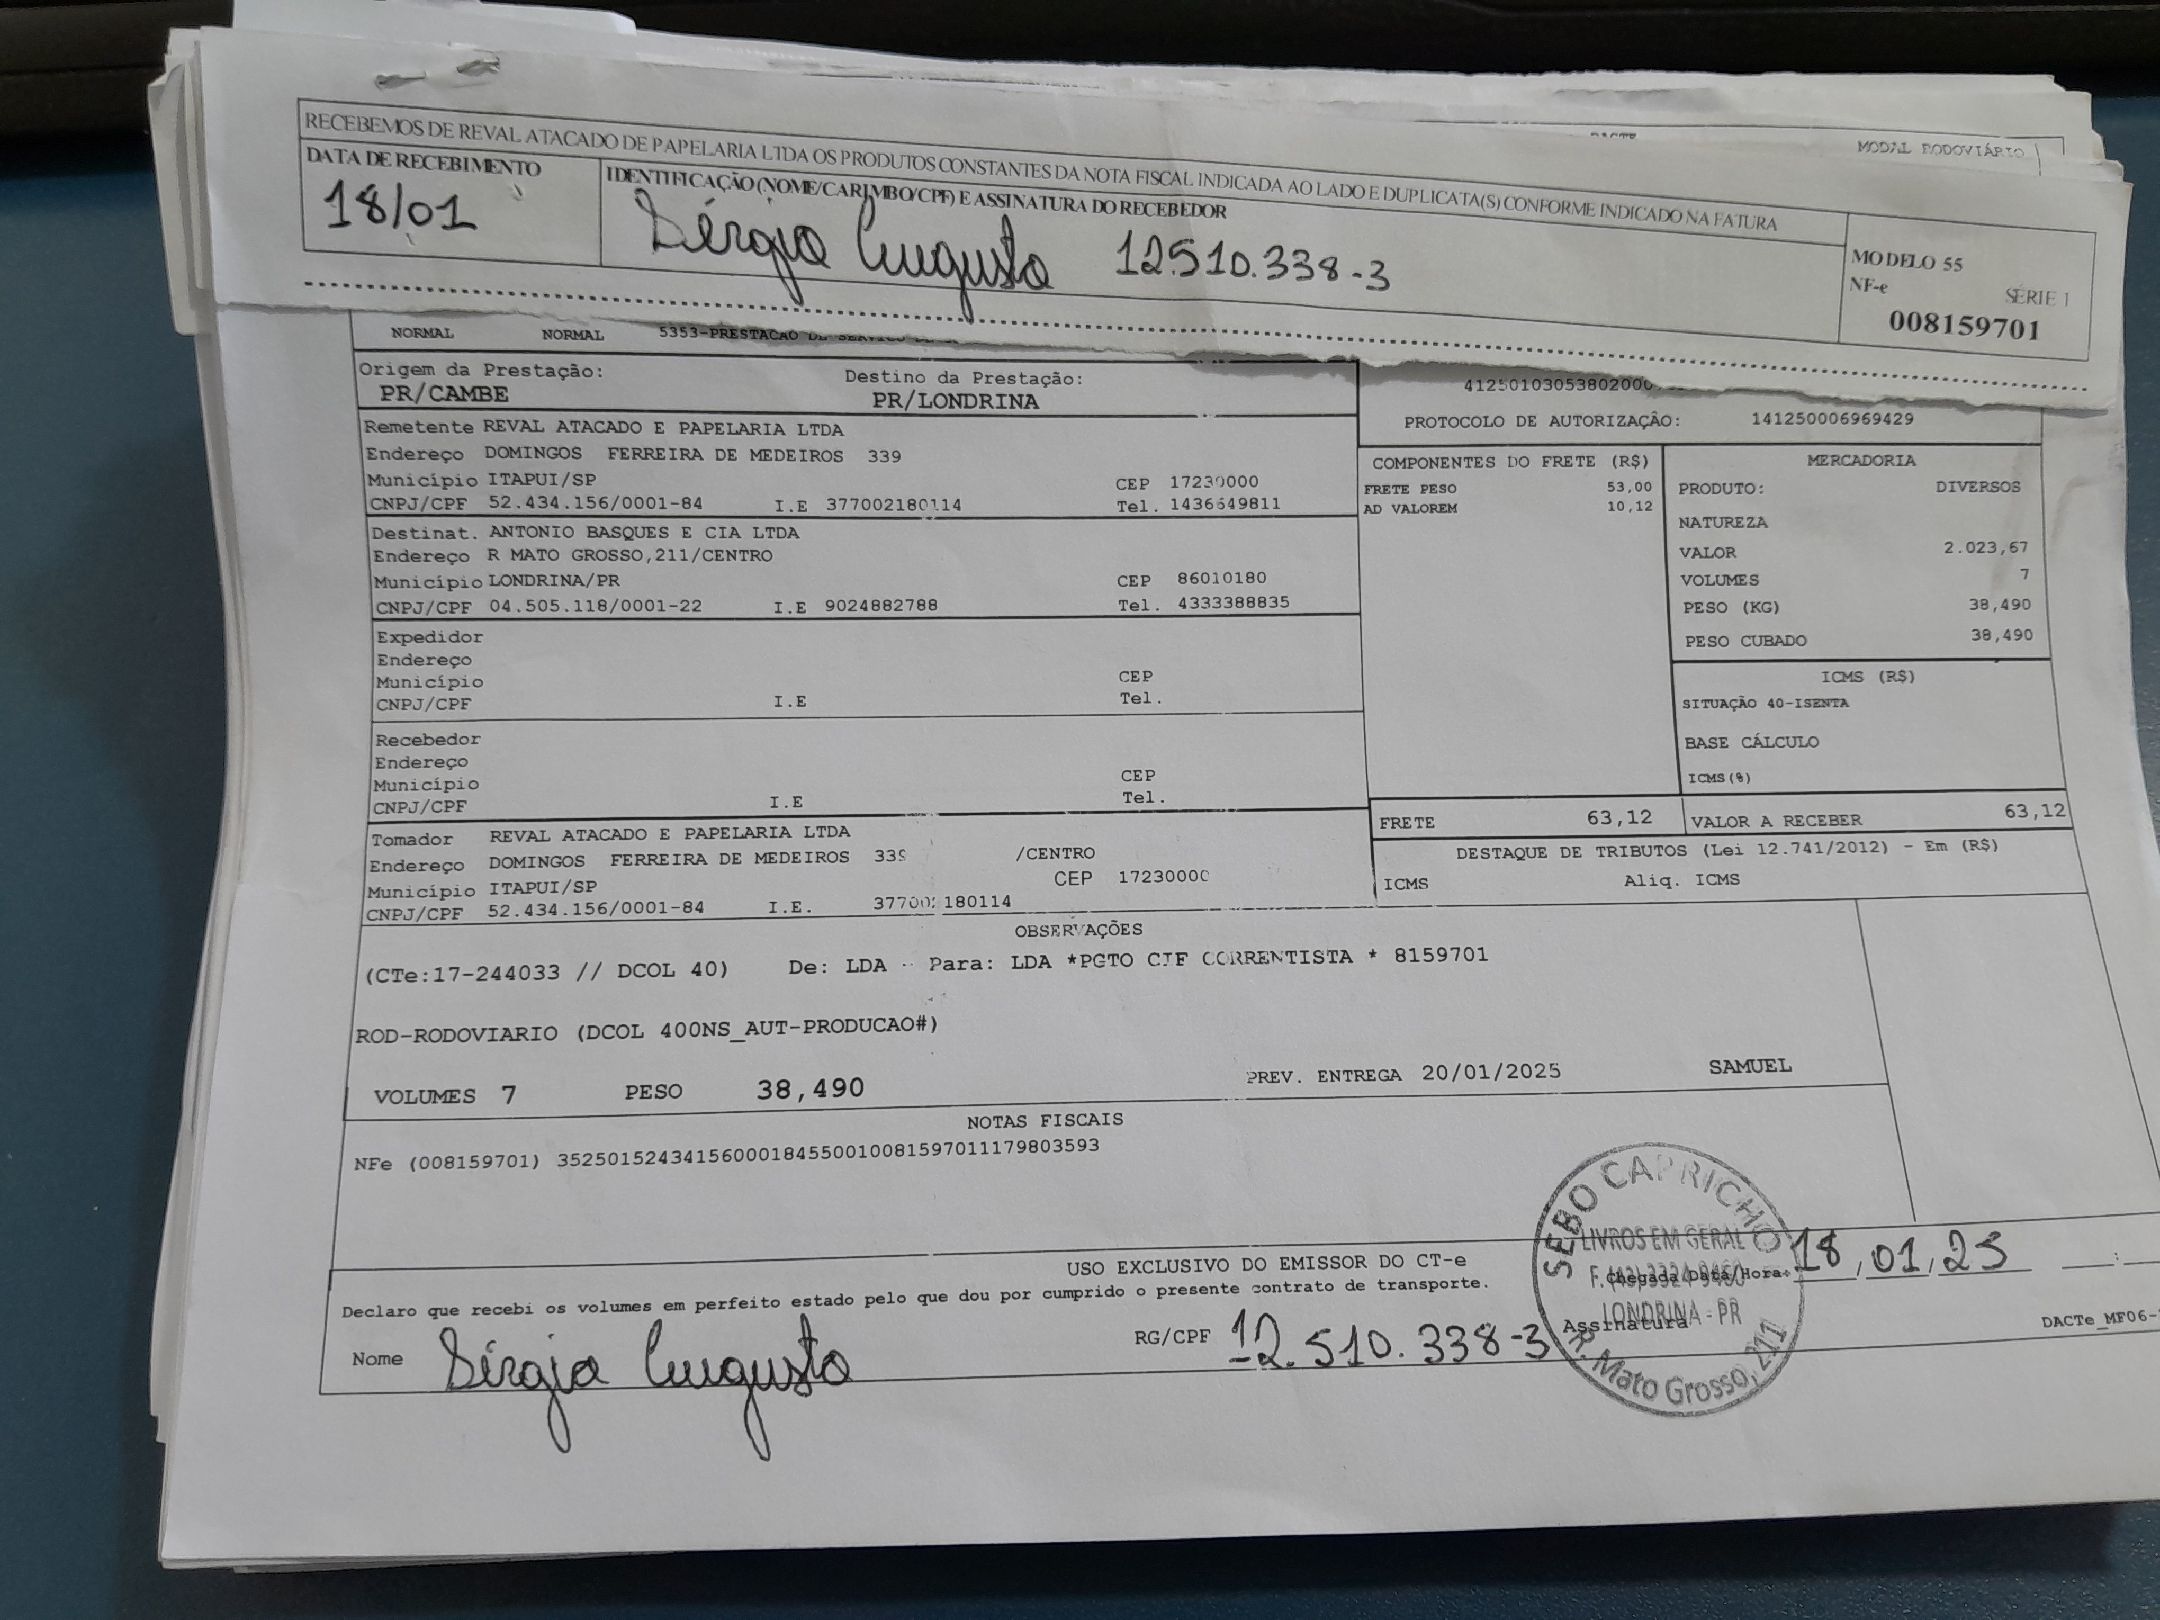 DACTE
MODAL RODOVIÁRIO
RECEBEMOS DE REVAL ATACADO DE PAPELARIA LTDA OS PRODUTOS CONSTANTES DA NOTA FISCAL INDICADA AO LADO E DUPLICATA(S) CONFORME INDICADO NA FATURA
DATA DE RECEBIMENTO
18/01
IDENTIFICAÇÃO (NOME/CARIMBO/CPF) E ASSINATURA DO RECEBEDOR
Sérgio Augusto 12.510.338-3
MODELO 55
NF-e SÉRIE 1
008159701
NORMAL NORMAL 5353-PRESTACAO DE SERVICO DE
Origem da Prestação: Destino da Prestação:
PR/CAMBE PR/LONDRINA
41250103053802000
PROTOCOLO DE AUTORIZAÇÃO: 141250006969429
Remetente REVAL ATACADO E PAPELARIA LTDA
Endereço DOMINGOS FERREIRA DE MEDEIROS 339
Município ITAPUI/SP CEP 17230000
CNPJ/CPF 52.434.156/0001-84 I.E 377002180114 Tel. 1436649811
Destinat. ANTONIO BASQUES E CIA LTDA
Endereço R MATO GROSSO,211/CENTRO
Município LONDRINA/PR CEP 86010180
CNPJ/CPF 04.505.118/0001-22 I.E 9024882788 Tel. 4333388835
Expedidor
Endereço
Município CEP
CNPJ/CPF I.E Tel.
Recebedor
Endereço
Município CEP
CNPJ/CPF I.E Tel.
Tomador REVAL ATACADO E PAPELARIA LTDA
Endereço DOMINGOS FERREIRA DE MEDEIROS 339 /CENTRO
Município ITAPUI/SP CEP 17230000
CNPJ/CPF 52.434.156/0001-84 I.E. 377002180114
COMPONENTES DO FRETE (R$)
FRETE PESO 53,00
AD VALOREM 10,12
MERCADORIA
PRODUTO: DIVERSOS
NATUREZA
VALOR 2.023,67
VOLUMES 7
PESO (KG) 38,490
PESO CUBADO 38,490
ICMS (R$)
SITUAÇÃO 40-ISENTA
BASE CÁLCULO
ICMS(%)
FRETE 63,12 VALOR A RECEBER 63,12
DESTAQUE DE TRIBUTOS (Lei 12.741/2012) - Em (R$)
ICMS Aliq. ICMS
OBSERVAÇÕES
(CTe:17-244033 // DCOL 40) De: LDA - Para: LDA *PGTO CIF CORRENTISTA * 8159701
ROD-RODOVIARIO (DCOL 400NS_AUT-PRODUCAO#)
VOLUMES 7 PESO 38,490 PREV. ENTREGA 20/01/2025 SAMUEL
NOTAS FISCAIS
NFe (008159701) 35250152434156000184550010081597011179803593
USO EXCLUSIVO DO EMISSOR DO CT-e
Declaro que recebi os volumes em perfeito estado pelo que dou por cumprido o presente contrato de transporte.
Nome Sérgio Augusto RG/CPF 12.510.338-3
Chegada Data/Hora: 18/01/25 __:__
Assinatura
DACTe_MF06-
SEBO CAPRICHO
LIVROS EM GERAL
LONDRINA - PR
R. Mato Grosso, 211